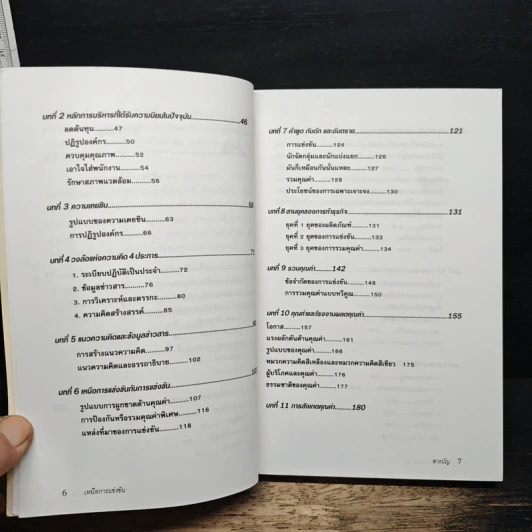 บทที่ 2 หลักการบริหารที่ได้รับความนิยมในปัจจุบัน..........46
ลดต้นทุน..........47
ปฏิรูปองค์กร..........50
ควบคุมคุณภาพ..........52
เอาใจใส่พนักงาน..........54
รักษาสภาพแวดล้อม..........56
บทที่ 3 ความเคยชิน
รูปแบบของความเคยชิน..........63
การปฏิรูปองค์กร..........66
บทที่ 4 วงล้อแห่งความคิด 4 ประการ
1. ระเบียบปฏิบัติเป็นประจำ..........72
2. ข้อมูลข่าวสาร..........76
3. การวิเคราะห์และตรรกะ..........80
4. ความคิดสร้างสรรค์..........84
บทที่ 5 แนวความคิดและข้อมูลข่าวสาร
การสร้างแนวความคิด..........97
แนวความคิดและอรรถาธิบาย..........102
บทที่ 6 เหนือการแข่งขันกับการแข่งขัน
รูปแบบการผูกขาดด้านคุณค่า..........107
การป้องกันหรือรวมคุณค่าพิเศษ..........116
แหล่งที่มาของการแข่งขัน..........118
6 เหนือการแข่งขัน
บทที่ 7 คำพูด กับดัก และอันตราย..........121
การแข่งขัน..........124
นักจัดกลุ่มและนักแบ่งแยก..........126
มันก็เหมือนกันนั่นแหละ..........127
รวมคุณค่า..........128
ประโยชน์ของการเฉพาะเจาะจง..........130
บทที่ 8 สามยุคของการทำธุรกิจ..........131
ยุคที่ 1 ยุคของผลิตภัณฑ์..........131
ยุคที่ 2 ยุคของการแข่งขัน..........133
ยุคที่ 3 ยุคของการรวมคุณค่า..........134
บทที่ 9 รวมคุณค่า..........142
ข้อจำกัดของการแข่งขัน..........148
การรวมคุณค่าแบบทวีคูณ..........150
บทที่ 10 คุณค่าและโรงงานผลิตคุณค่า..........155
โอกาส..........157
แรงผลักดันด้านคุณค่า..........161
รูปแบบของคุณค่า..........166
หมวกความคิดสีเหลืองและหมวกความคิดสีเขียว 175
ผู้บริโภคและคุณค่า..........176
ธรรมชาติของคุณค่า..........177
บทที่ 11 การสังเกตคุณค่า..........180
สารบัญ 7